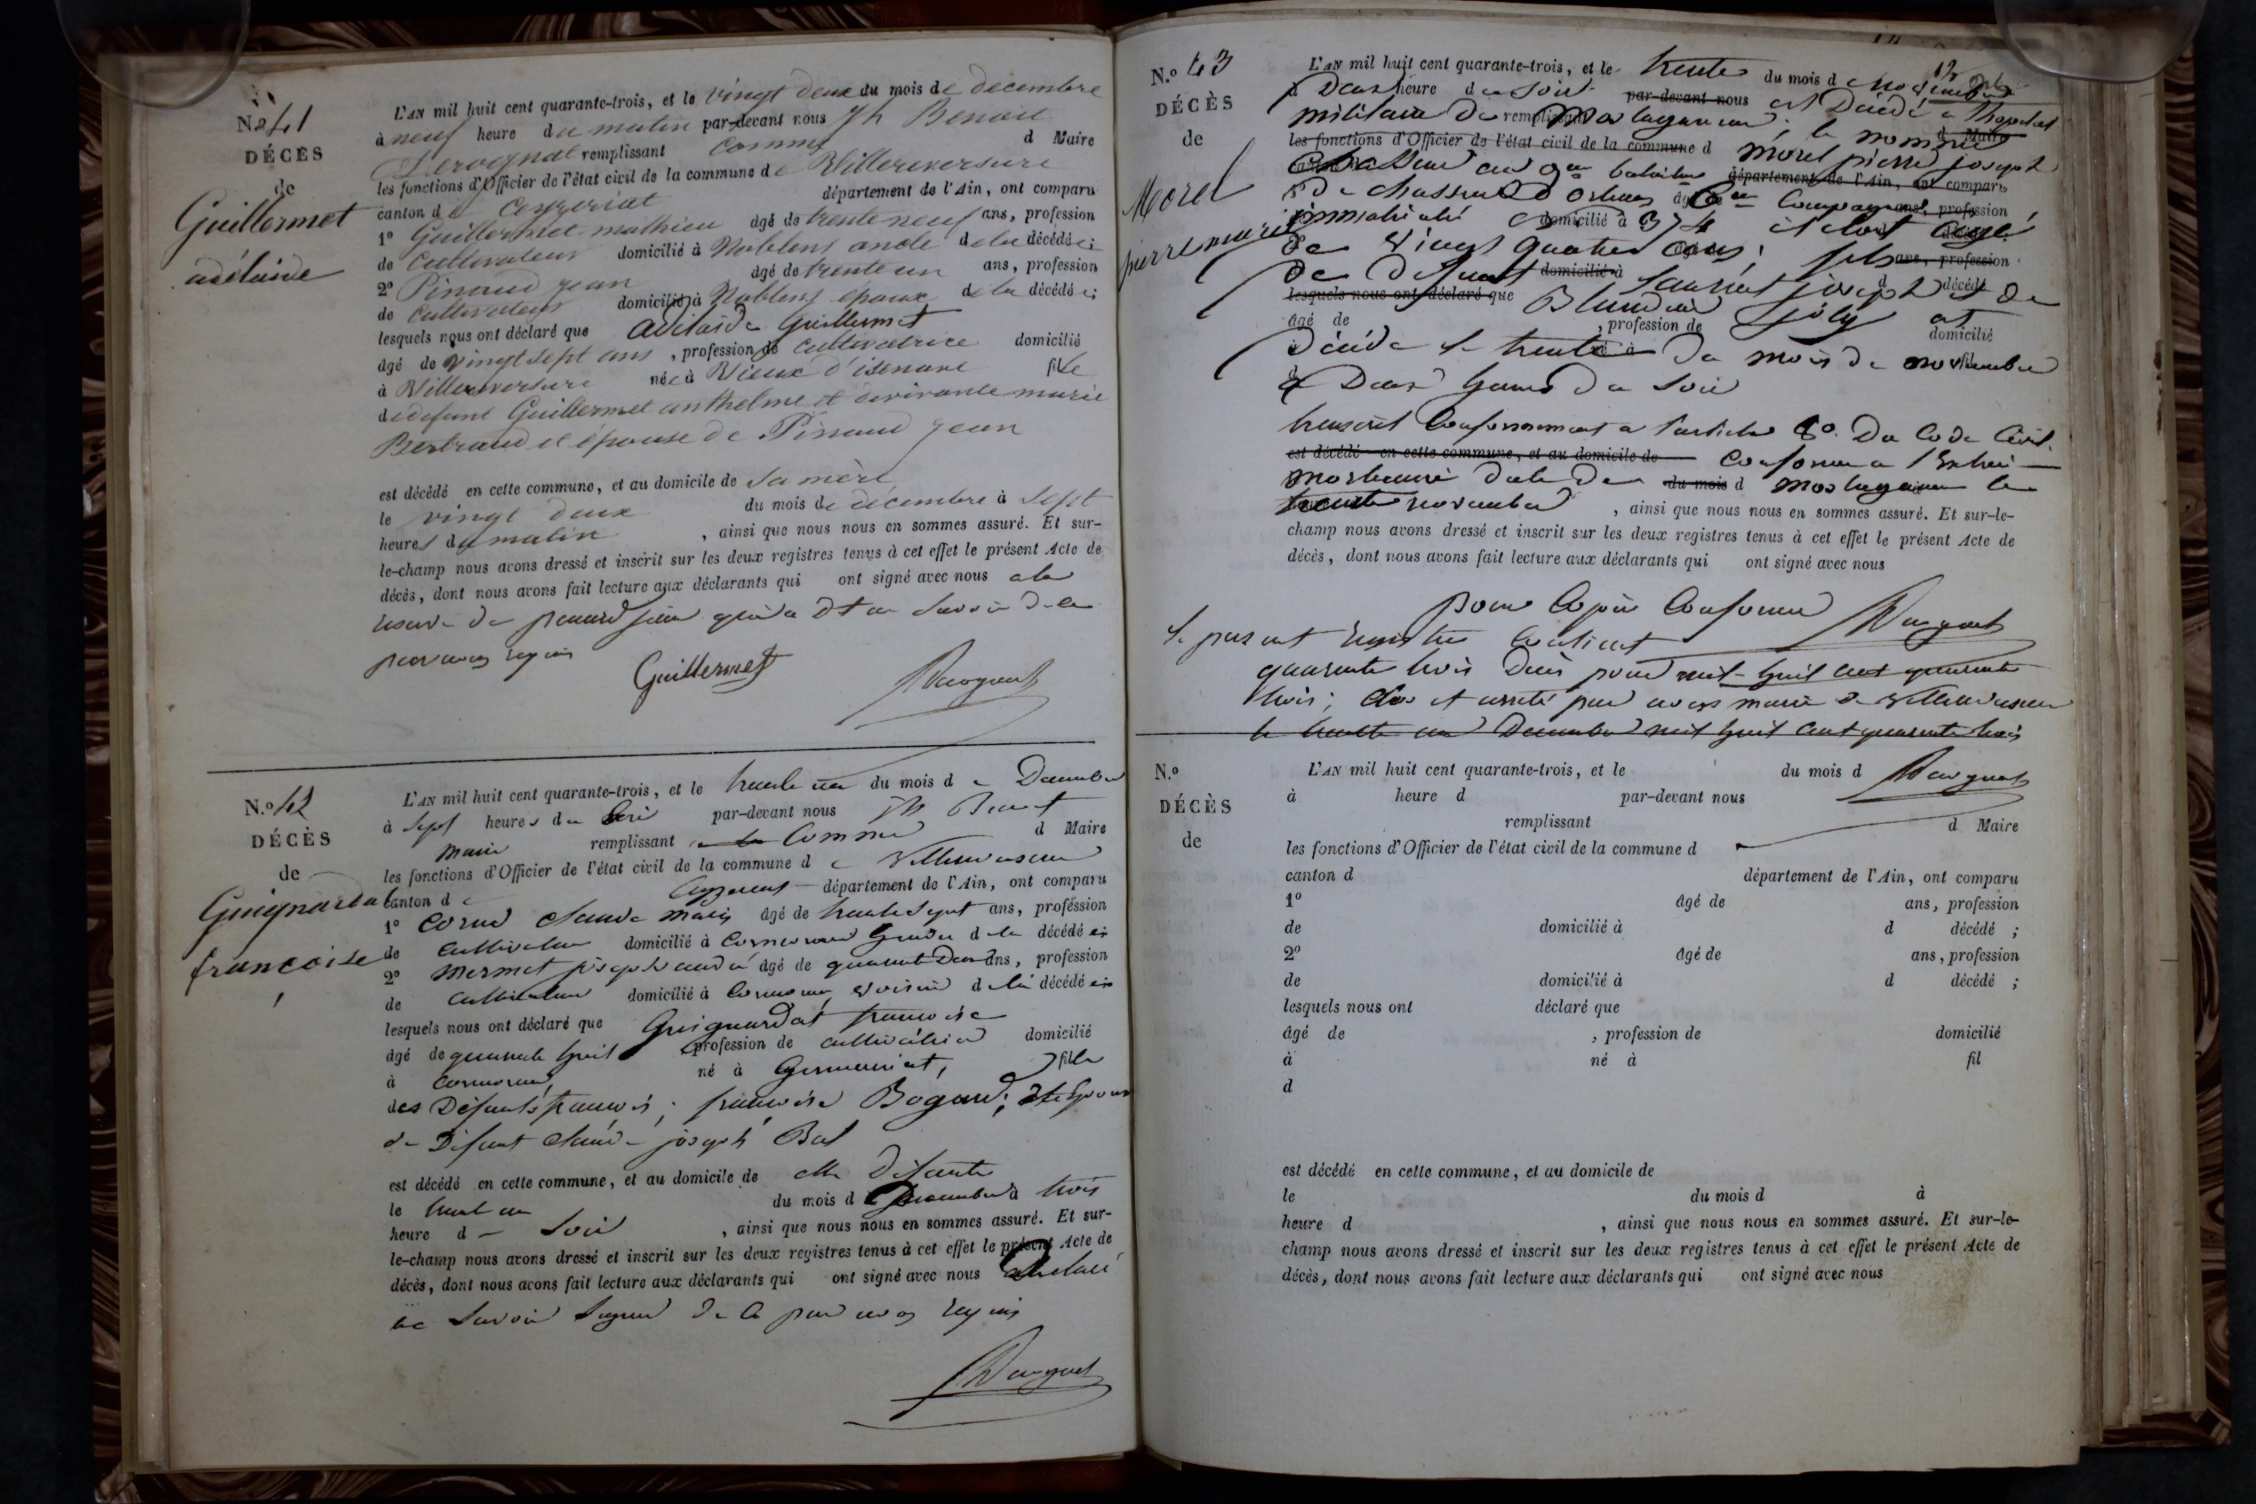 N.º 41
DÉCÈS
de
Guillermet
adélaïde
L'AN mil huit cent quarante-trois, et le vingt deux du mois de décembre
à neuf heure du matin par-devant nous Jh Benoit
remplissant comme d Maire
les fonctions d'Officier de l'état civil de la commune de Villereversure
canton de Ceyzeriat département de l'Ain, ont comparu
1º Guillermet mathieu âgé de trente neuf ans, profession
de cultivateur domicilié à Noblens oncle de la décédée;
2º Pinaud jean âgé de trente un ans, profession
de cultivateur domicilié à Noblens époux de la décédée;
lesquels nous ont déclaré que adélaïde Guillermet
âgé de vingt sept ans, profession de cultivatrice domicilié
à Villereversure née à Vieux d'isenave fille
de défunt Guillermet anthelme et de vivante marie
Bertrand et épouse de Pinaud jean
est décédé en cette commune, et au domicile de sa mère
le vingt deux du mois de décembre à sept
heures du matin, ainsi que nous nous en sommes assuré. Et sur-
le-champ nous avons dressé et inscrit sur les deux registres tenus à cet effet le présent Acte de
décès, dont nous avons fait lecture aux déclarants qui ont signé avec nous a la
de jean qui a dt ne savoir de ce
par nous requis
Guillermet
N.º 42
DÉCÈS
de
Guignardat
françoise
L'AN mil huit cent quarante-trois, et le trente un du mois de Décembre
à sept heures du soir par-devant nous Jh Benoit
maire remplissant comme d Maire
les fonctions d'Officier de l'état civil de la commune de Villereversure
canton de Ceyzeriat département de l'Ain, ont comparu
1º Cornu claude marie âgé de trente sept ans, profession
de cultivateur domicilié à Gendre de la décédée;
2º mermet joseph andré âgé de quarante Deux ans, profession
de cultivateur domicilié à voisin de la décédée;
lesquels nous ont déclaré que Guignardat françoise
âgé de quarante huit, profession de cultivatrice domicilié
à né à Germaniat, fille
des Défunts françois; françoise Bogard; et Epouse
de Défunt claude joseph Bal
est décédé en cette commune, et au domicile de elle Défunte
le trente un du mois de Décembre à trois
heure d soir, ainsi que nous nous en sommes assuré. Et sur-
le-champ nous avons dressé et inscrit sur les deux registres tenus à cet effet le présent Acte de
décès, dont nous avons fait lecture aux déclarants qui ont signé avec nous
ne savoir signer de ce par nous requis
N.º 43
DÉCÈS
de
Morel
pierre marie
L'AN mil huit cent quarante-trois, et le trente du mois d novembre
à Deux heure du soir par-devant nous est Décédé a l'hopital
militaire De remplissant Mostaganem, le nommé d Maire
les fonctions d'Officier de l'état civil de la commune d morel pierre joseph
chasseur au 9me bataillon département de l'Ain, ont comparu
de chasseurs d'orleans âgé 6me compagnie ans, profession
immatriculé domicilié à 374 était agé
de vingt quatre ans; fils ans, profession
de Defunt domicilié à Laurent joseph et De d décédé
lesquels nous ont déclaré que Blandine joly et
âgé de, profession de domicilié
Décédé le trente Du mois De novembre
à Deux heures Du soir
transcrit Conformement a l'article 80 Du Code Civil
est décédé en cette commune, et au domicile de conforme a l'Extrait
mortuaire daté De du mois d mostaganem le
trente novembre, ainsi que nous nous en sommes assuré. Et sur-le-
champ nous avons dressé et inscrit sur les deux registres tenus à cet effet le présent Acte de
décès, dont nous avons fait lecture aux déclarants qui ont signé avec nous
pour Copie Conforme
le présent registre Contient
quarante trois Décès pour mil huit cent quarante
trois; clos et arreté par nous maire de Villereversure
le trente un Decembre mil huit cent quarante trois
N.º
DÉCÈS
de
L'AN mil huit cent quarante-trois, et le du mois d
à heure d par-devant nous
remplissant d Maire
les fonctions d'Officier de l'état civil de la commune d
canton d département de l'Ain, ont comparu
1º âgé de ans, profession
de domicilié à d décédé ;
2º âgé de ans, profession
de domicilié à d décédé ;
lesquels nous ont déclaré que
âgé de , profession de domicilié
à né à fil
d
est décédé en cette commune, et au domicile de
le du mois d à
heure d , ainsi que nous nous en sommes assuré. Et sur-le-
champ nous avons dressé et inscrit sur les deux registres tenus à cet effet le présent Acte de
décès, dont nous avons fait lecture aux déclarants qui ont signé avec nous